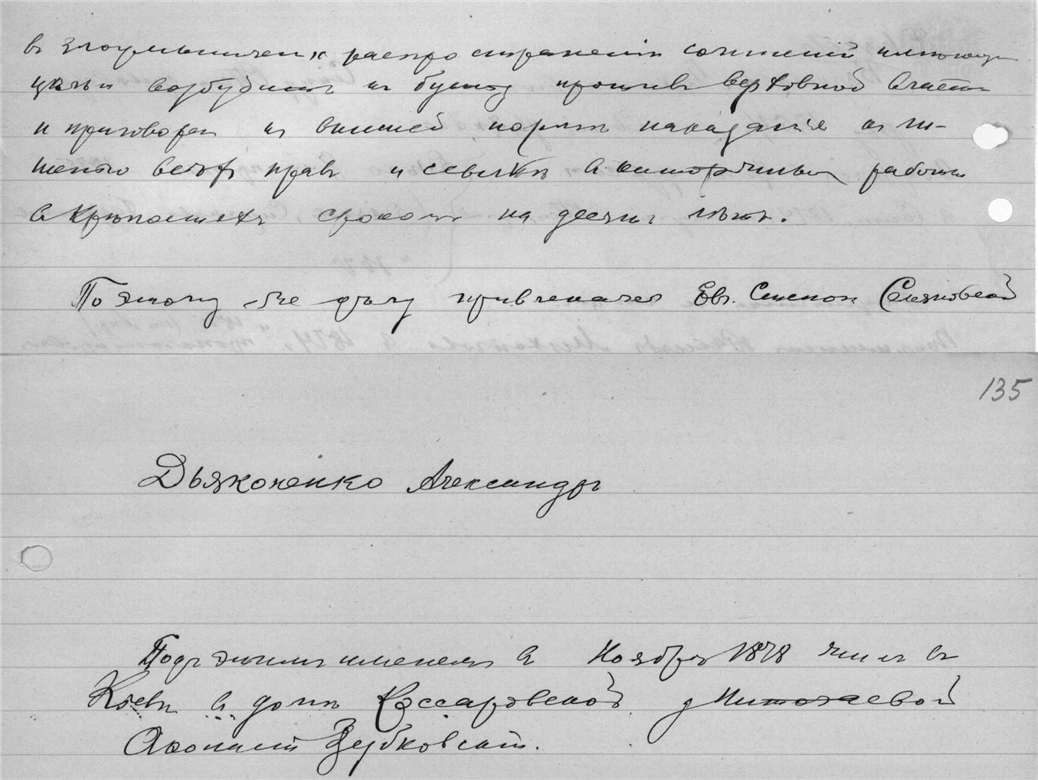 въ злоумышленн. распространенiи сочиненiй имеющих
цѣлью возбудить къ бунту противъ верховной власти
и приговоренъ къ высшей мѣрѣ наказанiя къ ли-
шенiю всѣхъ правъ и ссылкѣ въ каторжныя работы
въ крѣпостяхъ срокомъ на десять лѣтъ.
По этому -же дѣлу привлекался Евг. Семенов.
135
Дьяконенко Александръ
Подъ этимъ именемъ въ Ноябрѣ 1878 жилъ въ
Кiевѣ въ домѣ Коссаровской у